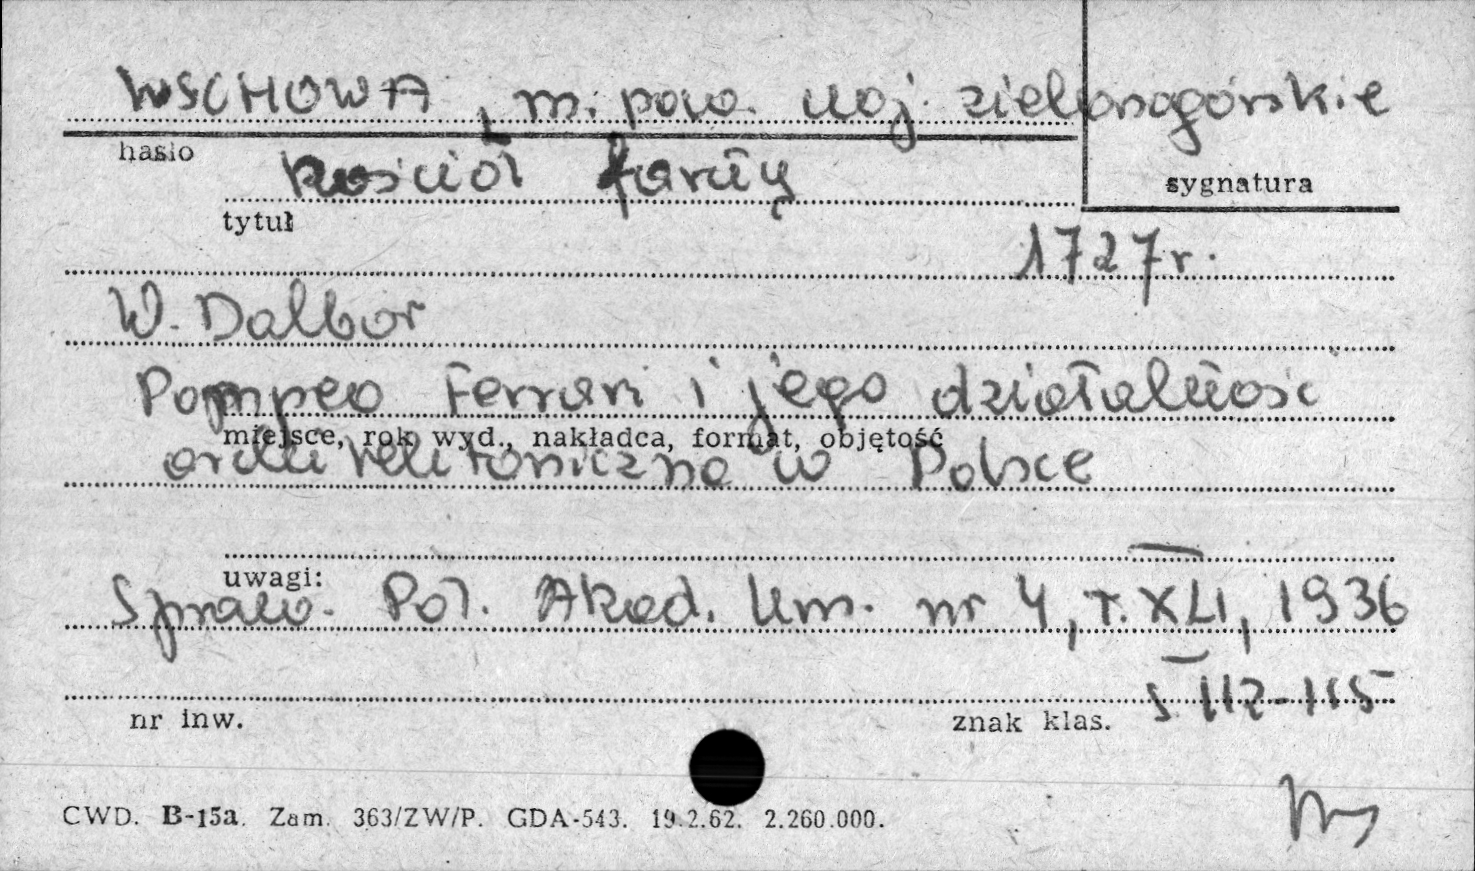 WSCHOWA, m. pow. woj. zielonogórskie
hasło
kościół farny
sygnatura
tytuł
1727 r.
W. Dalbor
Pompeo Ferrari i jego działalność
miejsce, rok wyd., nakładca, format, objętość
architektoniczna w Polsce
uwagi:
Spraw. Pol. Akad. Um. nr 4, T. XLI, 1936
s 112-115
nr inw.
znak klas.
CWD. B-15a. Zam. 363/ZW/P. GDA-543. 19.2.62. 2.260.000.